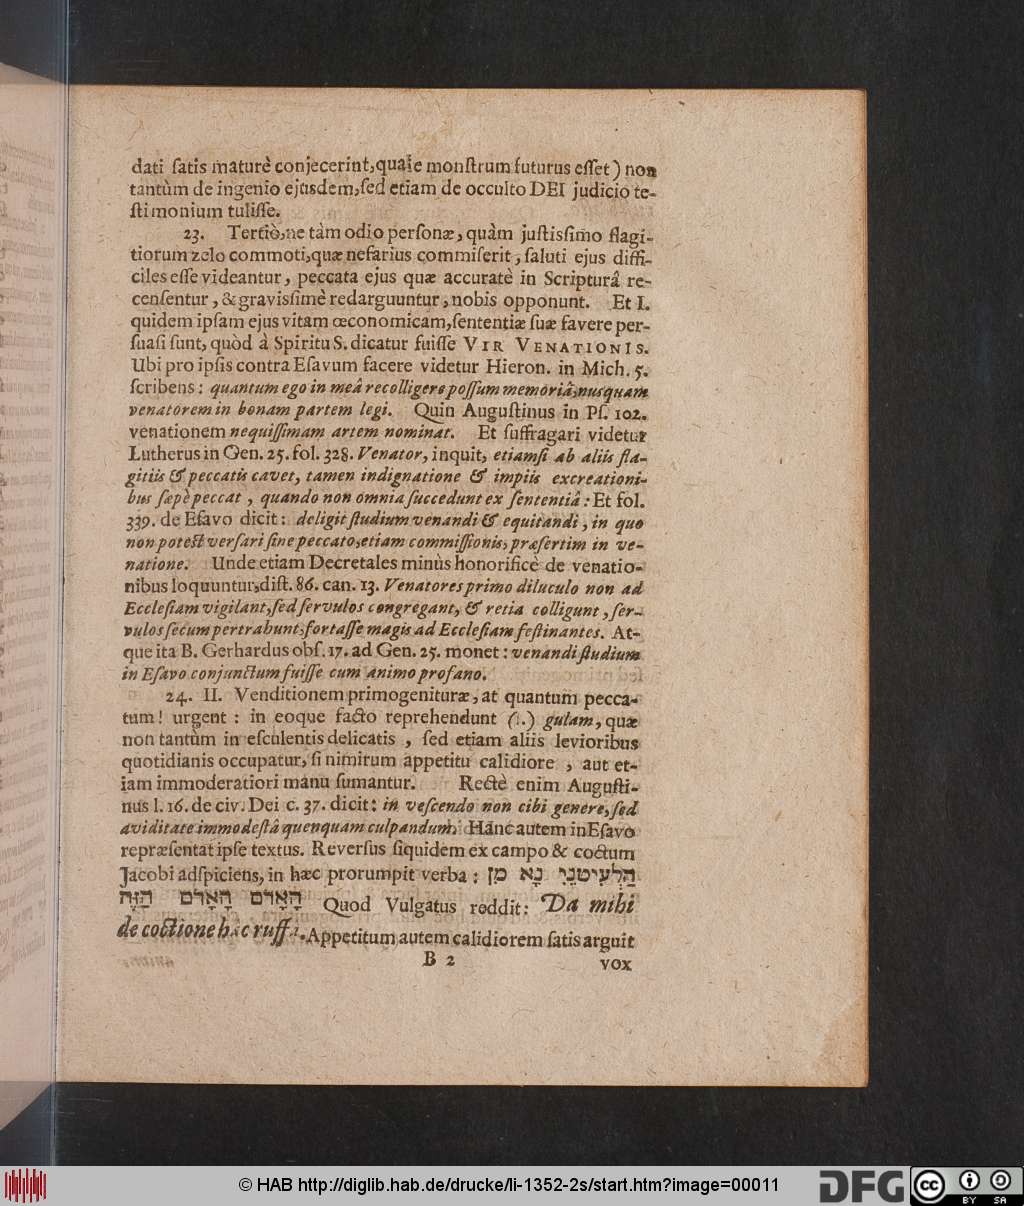 dati ſatis maturè conjecerint,quale monſtrum futurus eſſet) non
tantùm de ingenio ejusdem,ſed etiam de occulto DEI judicio te-
ſtimonium tuliſſe.
23. Tertiò,ne tàm odio perſonæ, quàm juſtiſſimo flagi-
tiorum zelo commoti,quæ nefarius commiſerit, ſaluti ejus diffi-
ciles eſſe videantur, peccata ejus quæ accuratè in Scripturâ re-
cenſentur, & graviſſimè redarguuntur, nobis opponunt. Et I.
quidem ipſam ejus vitam œconomicam,ſententiæ ſuæ favere per-
ſuaſi ſunt, quòd à Spiritu S. dicatur fuiſſe VIR VENATIONIS.
Ubi pro ipſis contra Eſavum facere videtur Hieron. in Mich. 5.
ſcribens: quantum ego in meâ recolligere poſſum memoriâ,nusquam
venatorem in bonam partem legi. Quin Auguſtinus in Pſ. 102.
venationem nequiſſimam artem nominat. Et ſuffragari videtur
Lutherus in Gen. 25. fol. 328. Venator, inquit, etiamſi ab aliis fla-
gitiis & peccatis cavet, tamen indignatione & impiis excreationi-
bus ſæpè peccat, quando non omnia ſuccedunt ex ſententiâ: Et fol.
339. de Eſavo dicit: deligit ſtudium venandi & equitandi, in quo
non poteſt verſari ſine peccato,etiam commiſſionis, præſertim in ve-
natione. Unde etiam Decretales minùs honorificè de venatio-
nibus loquuntur,diſt. 86. can. 13. Venatores primo diluculo non ad
Eccleſiam vigilant,ſed ſervulos congregant, & retia colligunt, ſer-
vulos ſecum pertrahunt,fortaſſe magis ad Eccleſiam feſtinantes. At-
que ita B. Gerhardus obſ. 17. ad Gen. 25. monet: venandi ſtudium
in Eſavo conjunctum fuiſſe cum animo profano.
24. II. Venditionem primogenituræ, at quantum pecca-
tum! urgent: in eoque facto reprehendunt (1.) gulam, quæ
non tantùm in eſculentis delicatis, ſed etiam aliis levioribus
quotidianis occupatur, ſi nimirum appetitu calidiore, aut et-
iam immoderatiori manu ſumantur. Rectè enim Auguſti-
nus l. 16. de civ. Dei c. 37. dicit: in veſcendo non cibi genere, ſed
aviditate immodeſtâ quenquam culpandum. Hanc autem in Eſavo
repræſentat ipſe textus. Reverſus ſiquidem ex campo & coctum
Jacobi adſpiciens, in hæc prorumpit verba: הַלְעִיטֵנִי נָא מִן
הָאָדֹם הָאָדֹם הַזֶּה Quod Vulgatus reddit: Da mihi
de coctione hac ruffa. Appetitum autem calidiorem ſatis arguit
B 2 vox
© HAB http://diglib.hab.de/drucke/li-1352-2s/start.htm?image=00011
DFG
cc BY SA